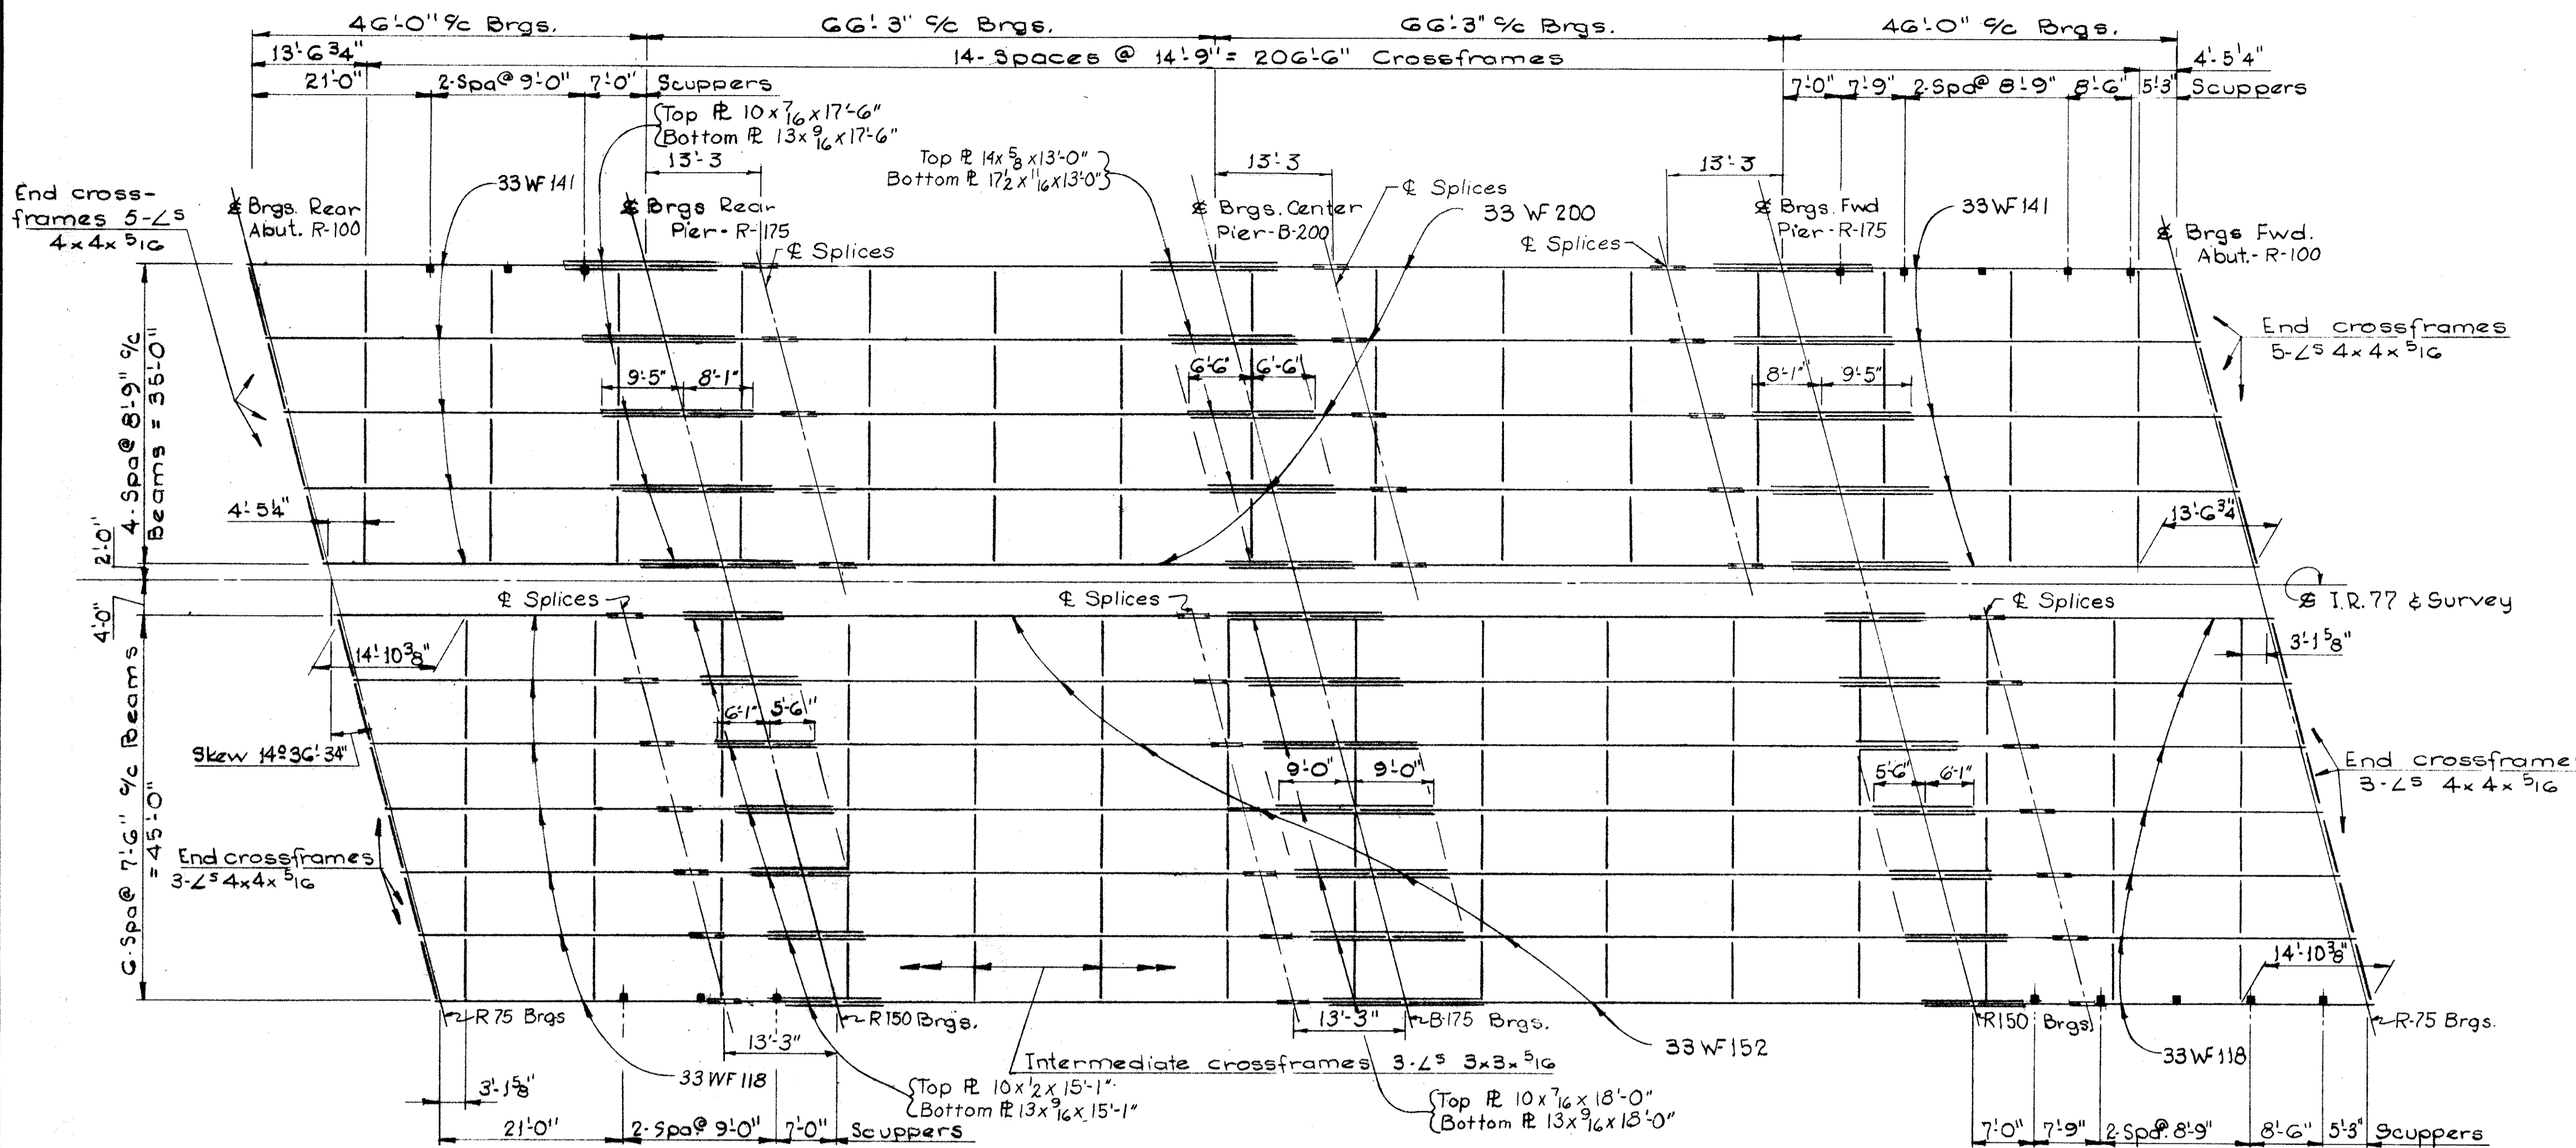 46'-0" c/c Brgs.
66'-3" c/c Brgs.
66'-3" c/c Brgs.
46'-0" c/c Brgs.
13'-6 3/4"
14-Spaces @ 14'-9" = 206'-6" Crossframes
4'-5 1/4"
21'-0"
2-Spa@ 9'-0"
7'-0"
Scuppers
7'-0"
7'-9"
2-Spa@ 8'-9"
8'-6"
5'-3"
Scuppers
Top PL 10 x 7/16 x 17'-6"
Bottom PL 13 x 9/16 x 17'-6"
13'-3
Top PL 14 x 5/8 x 13'-0"
Bottom PL 17 1/2 x 11/16 x 13'-0"
13'-3
13'-3
End cross-
frames 5-∠s
4x4x 5/16
33 WF 141
℄ Brgs. Rear
Abut. R-100
℄ Brgs Rear
Pier - R-175
℄ Splices
℄ Brgs. Center
Pier-B-200
℄ Splices
33 WF 200
℄ Splices
℄ Brgs. Fwd
Pier - R-175
33 WF 141
℄ Brgs Fwd.
Abut.- R-100
End crossframes
5-∠s 4x4x 5/16
4-Spa@ 8'-9" c/c
Beams = 35'-0"
9'-5"
8'-1"
6'-6"
6'-6"
8'-1"
9'-5"
4'-5 1/4"
13'-6 3/4"
2'-0"
4'-0"
℄ Splices
℄ Splices
℄ Splices
℄ I.R. 77 & Survey
14'-10 3/8"
3'-1 5/8"
6'-1"
5'-6"
Skew 14°36'-34"
9'-0"
9'-0"
5'-6"
6'-1"
End crossframe
3-∠s 4x4x 5/16
6-Spa@ 7'-6" c/c Beams
= 45'-0"
End crossframes
3-∠s 4x4x 5/16
14'-10 3/8"
R 75 Brgs
R 150 Brgs.
B-175 Brgs.
R 150 Brgs.
R-75 Brgs.
13'-3"
13'-3"
Intermediate crossframes 3-∠s 3x3x 5/16
33 WF 152
33 WF 118
33 WF 118
3'-1 5/8"
Top PL 10 x 1/2 x 15'-1"
Bottom PL 13 x 9/16 x 15'-1"
Top PL 10 x 7/16 x 18'-0"
Bottom PL 13 x 9/16 x 18'-0"
21'-0"
2-Spa@ 9'-0"
7'-0"
Scuppers
7'-0"
7'-9"
2-Spa. 8'-9"
8'-6"
5'-3"
Scuppers